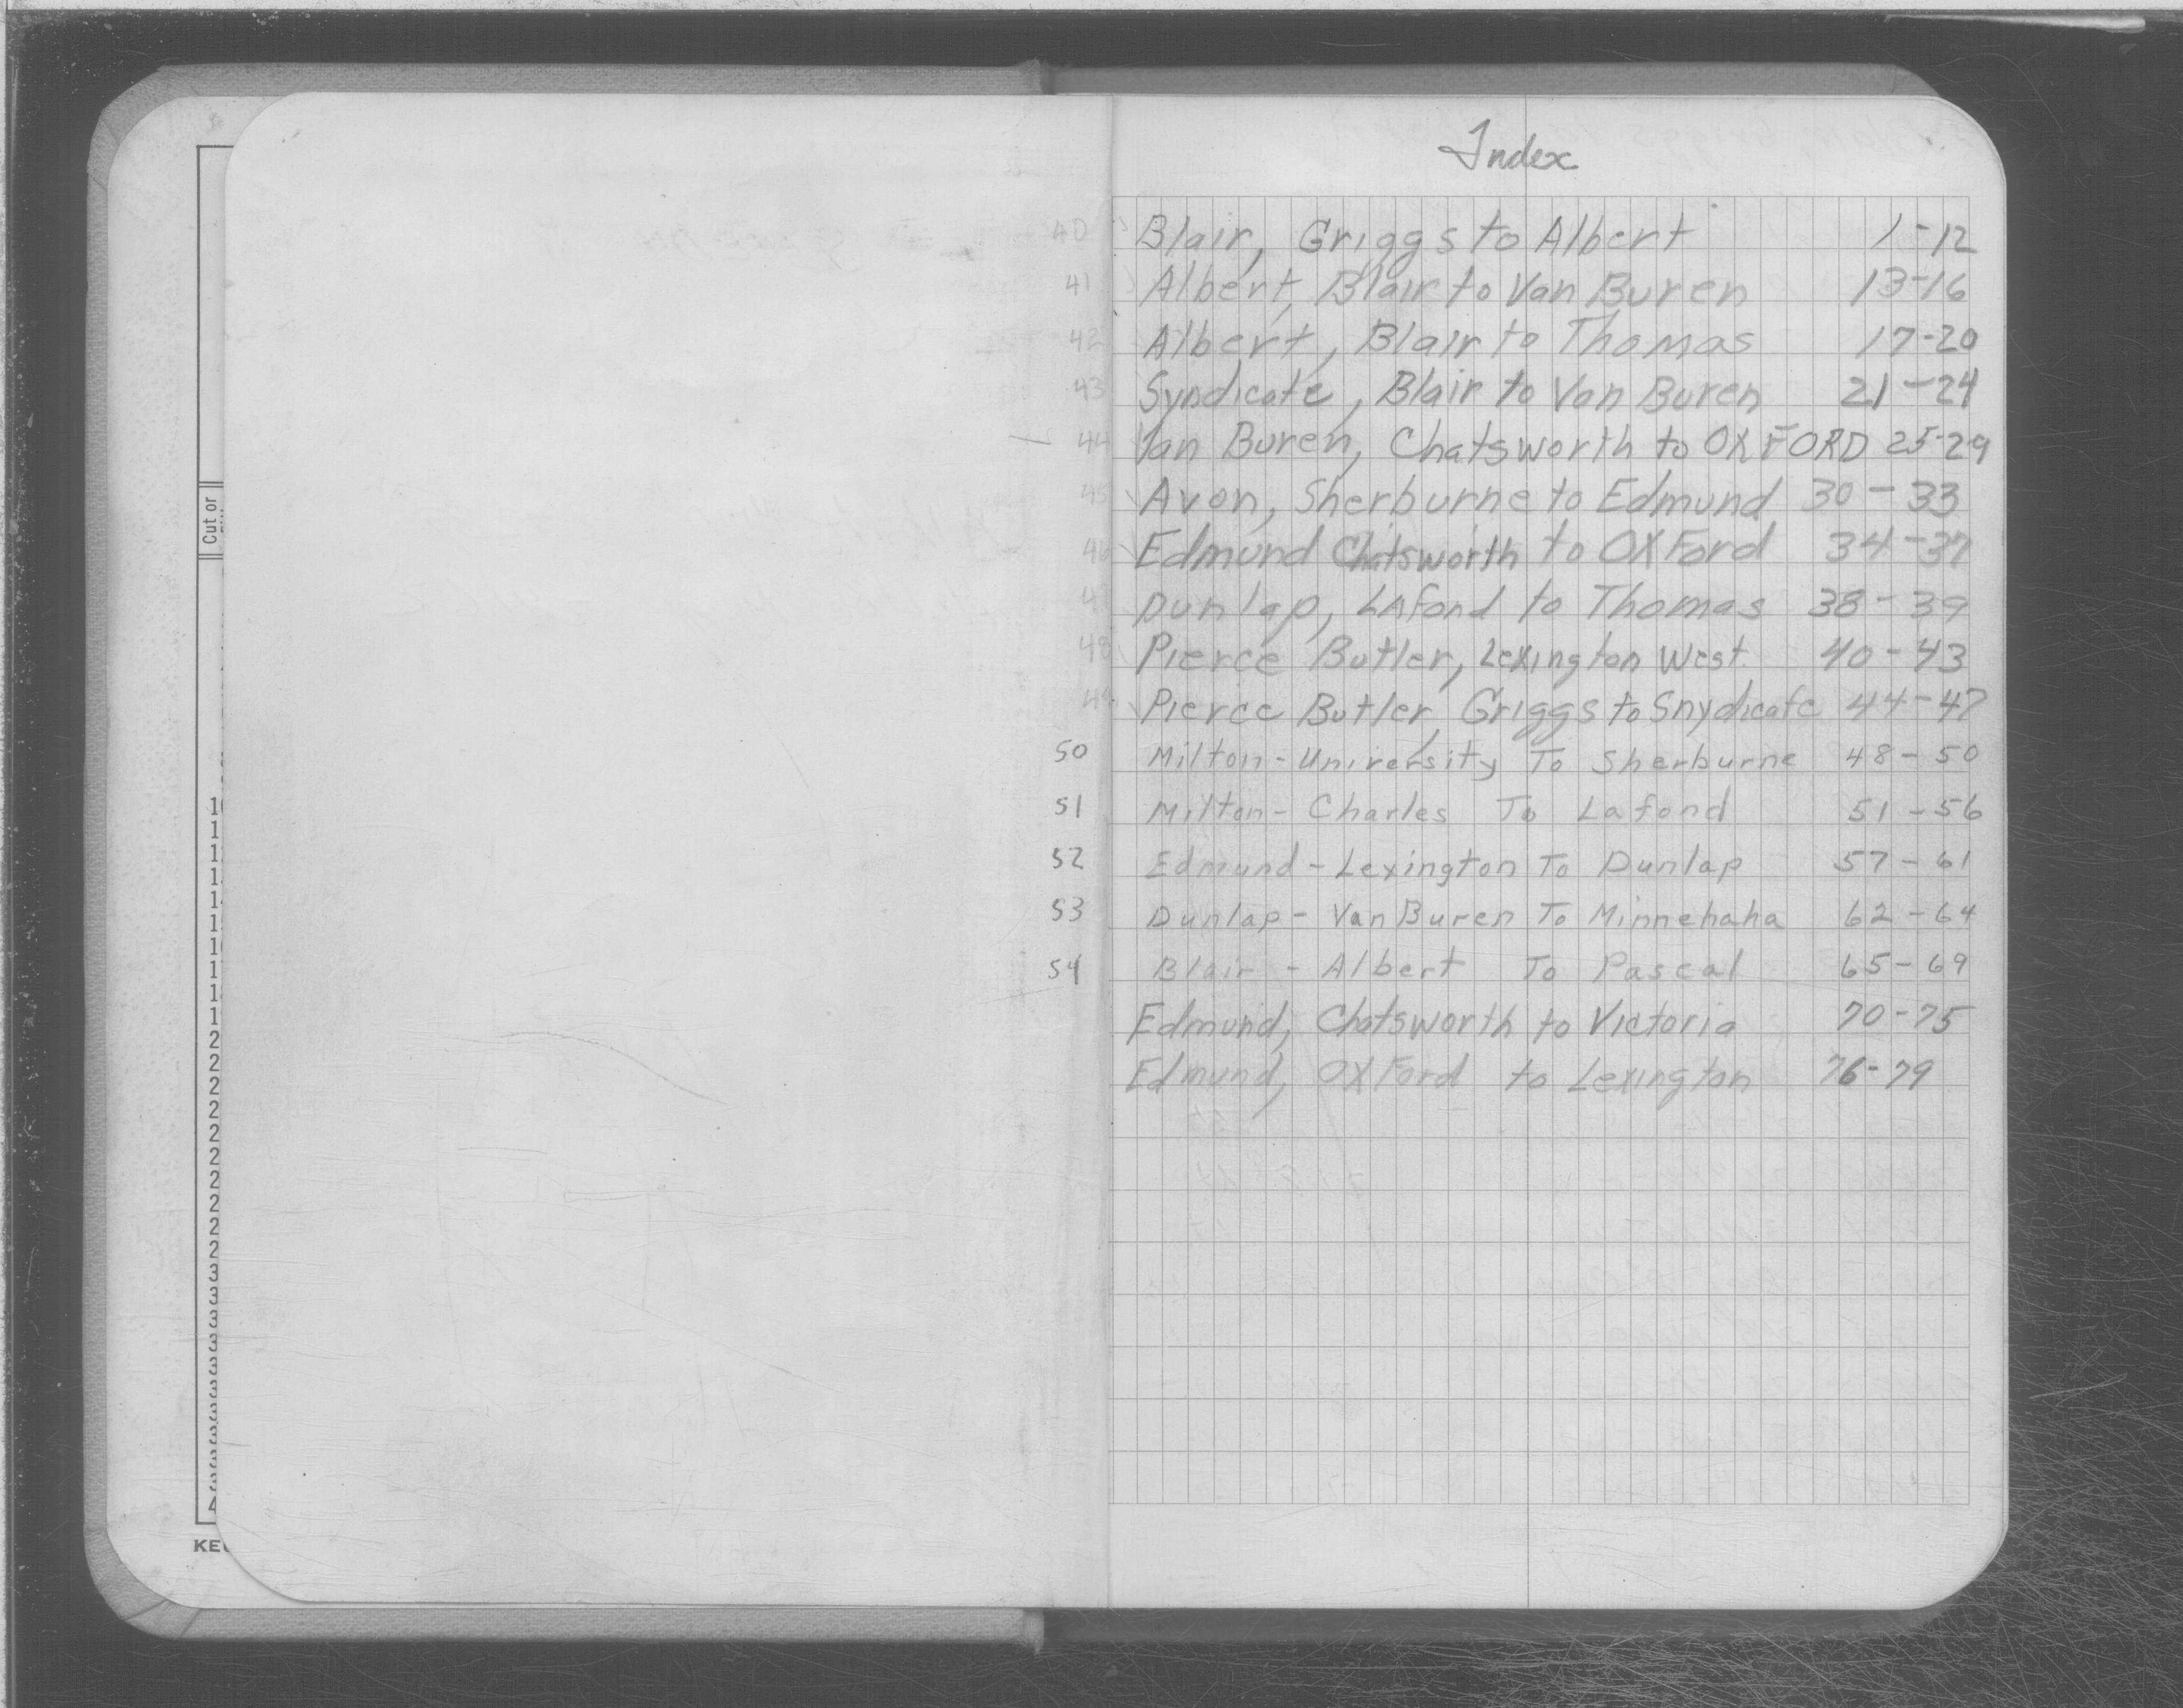 Index
40 Blair, Griggs to Albert 1-12
41 Albert, Blair to Van Buren 13-16
42 Albert, Blair to Thomas 17-20
43 Syndicate, Blair to Van Buren 21-24
44 Van Buren, Chatsworth to OXFORD 25-29
45 Avon, Sherburne to Edmund 30-33
46 Edmund Chatsworth to OXFord 34-37
47 Dunlap, LAfond to Thomas 38-39
48 Pierce Butler, Lexington West. 40-43
49 Pierce Butler, Griggs to Snydicate 44-47
50 Milton-University To Sherburne 48-50
51 Milton-Charles To Lafond 51-56
52 Edmund-Lexington To Dunlap 57-61
53 Dunlap-Van Buren To Minnehaha 62-64
54 Blair-Albert To Pascal 65-69
Edmund, Chatsworth to Victoria 70-75
Edmund, OXFord to Lexington 76-79
Cut or